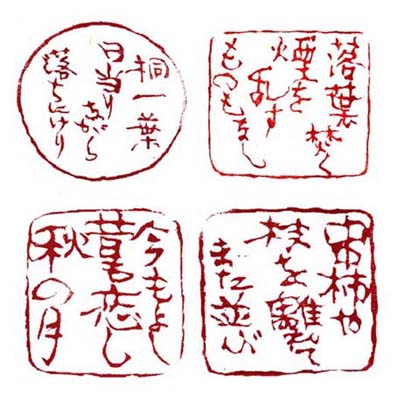 桐一葉
日当りながら
落ちにけり
落葉焚く
煙を
乱す
ものもなし
今もよし
昔も恋し
秋の月
串柿や
枝を離れて
また並び